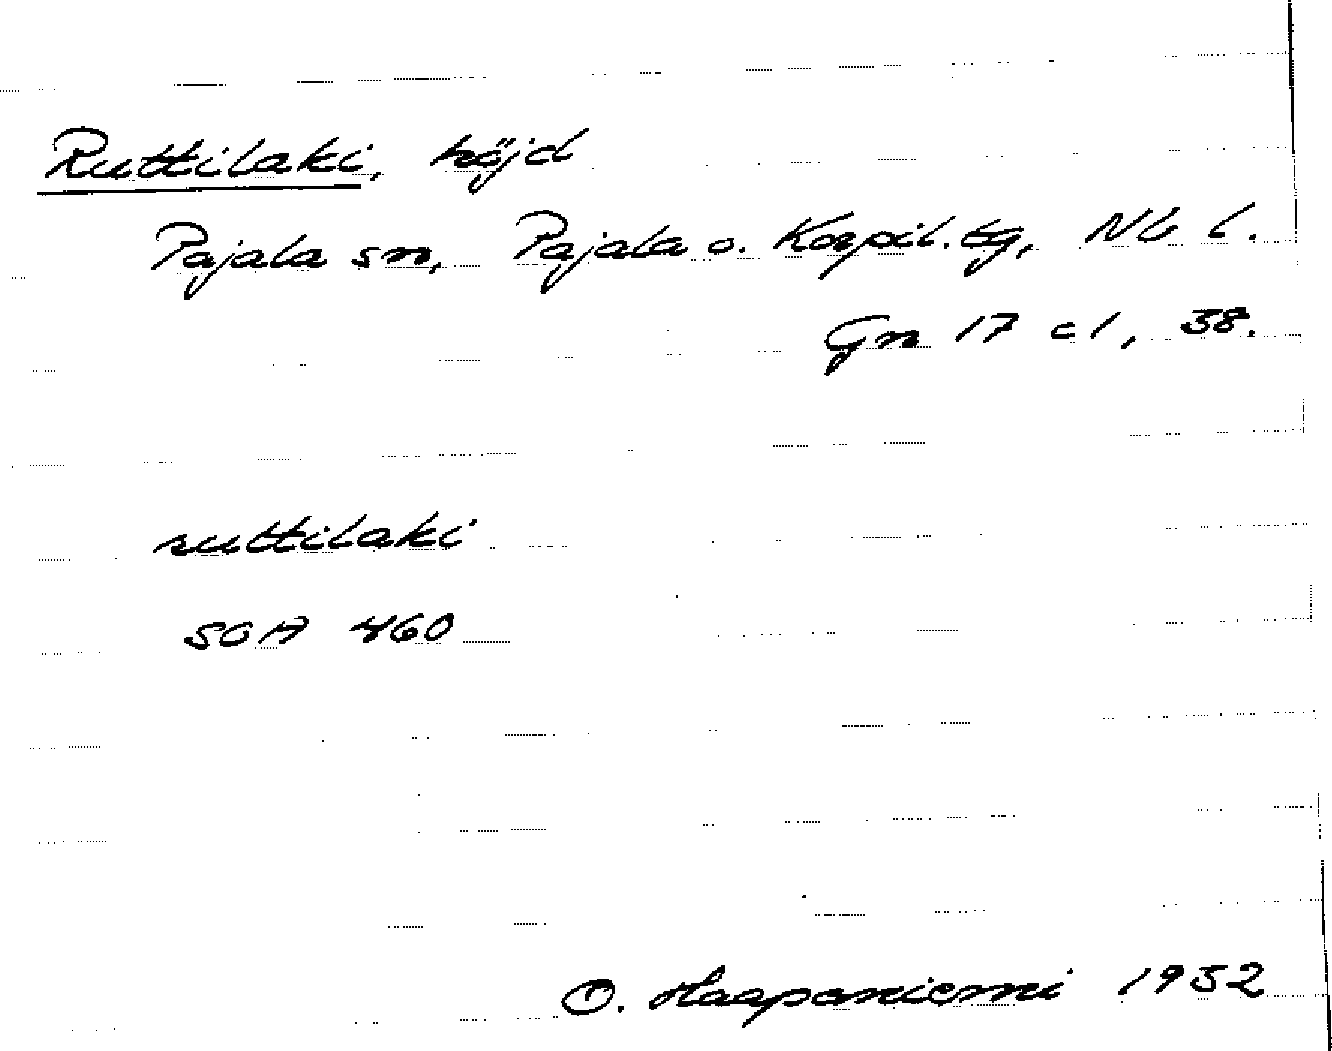 Ruttilaki, höjd
Pajala sn, Pajala o. Korpil. tg, Nb l.
Gn 17 c1, 38.
ruttilaki
SOA 460
O. Haapaniemi 1952